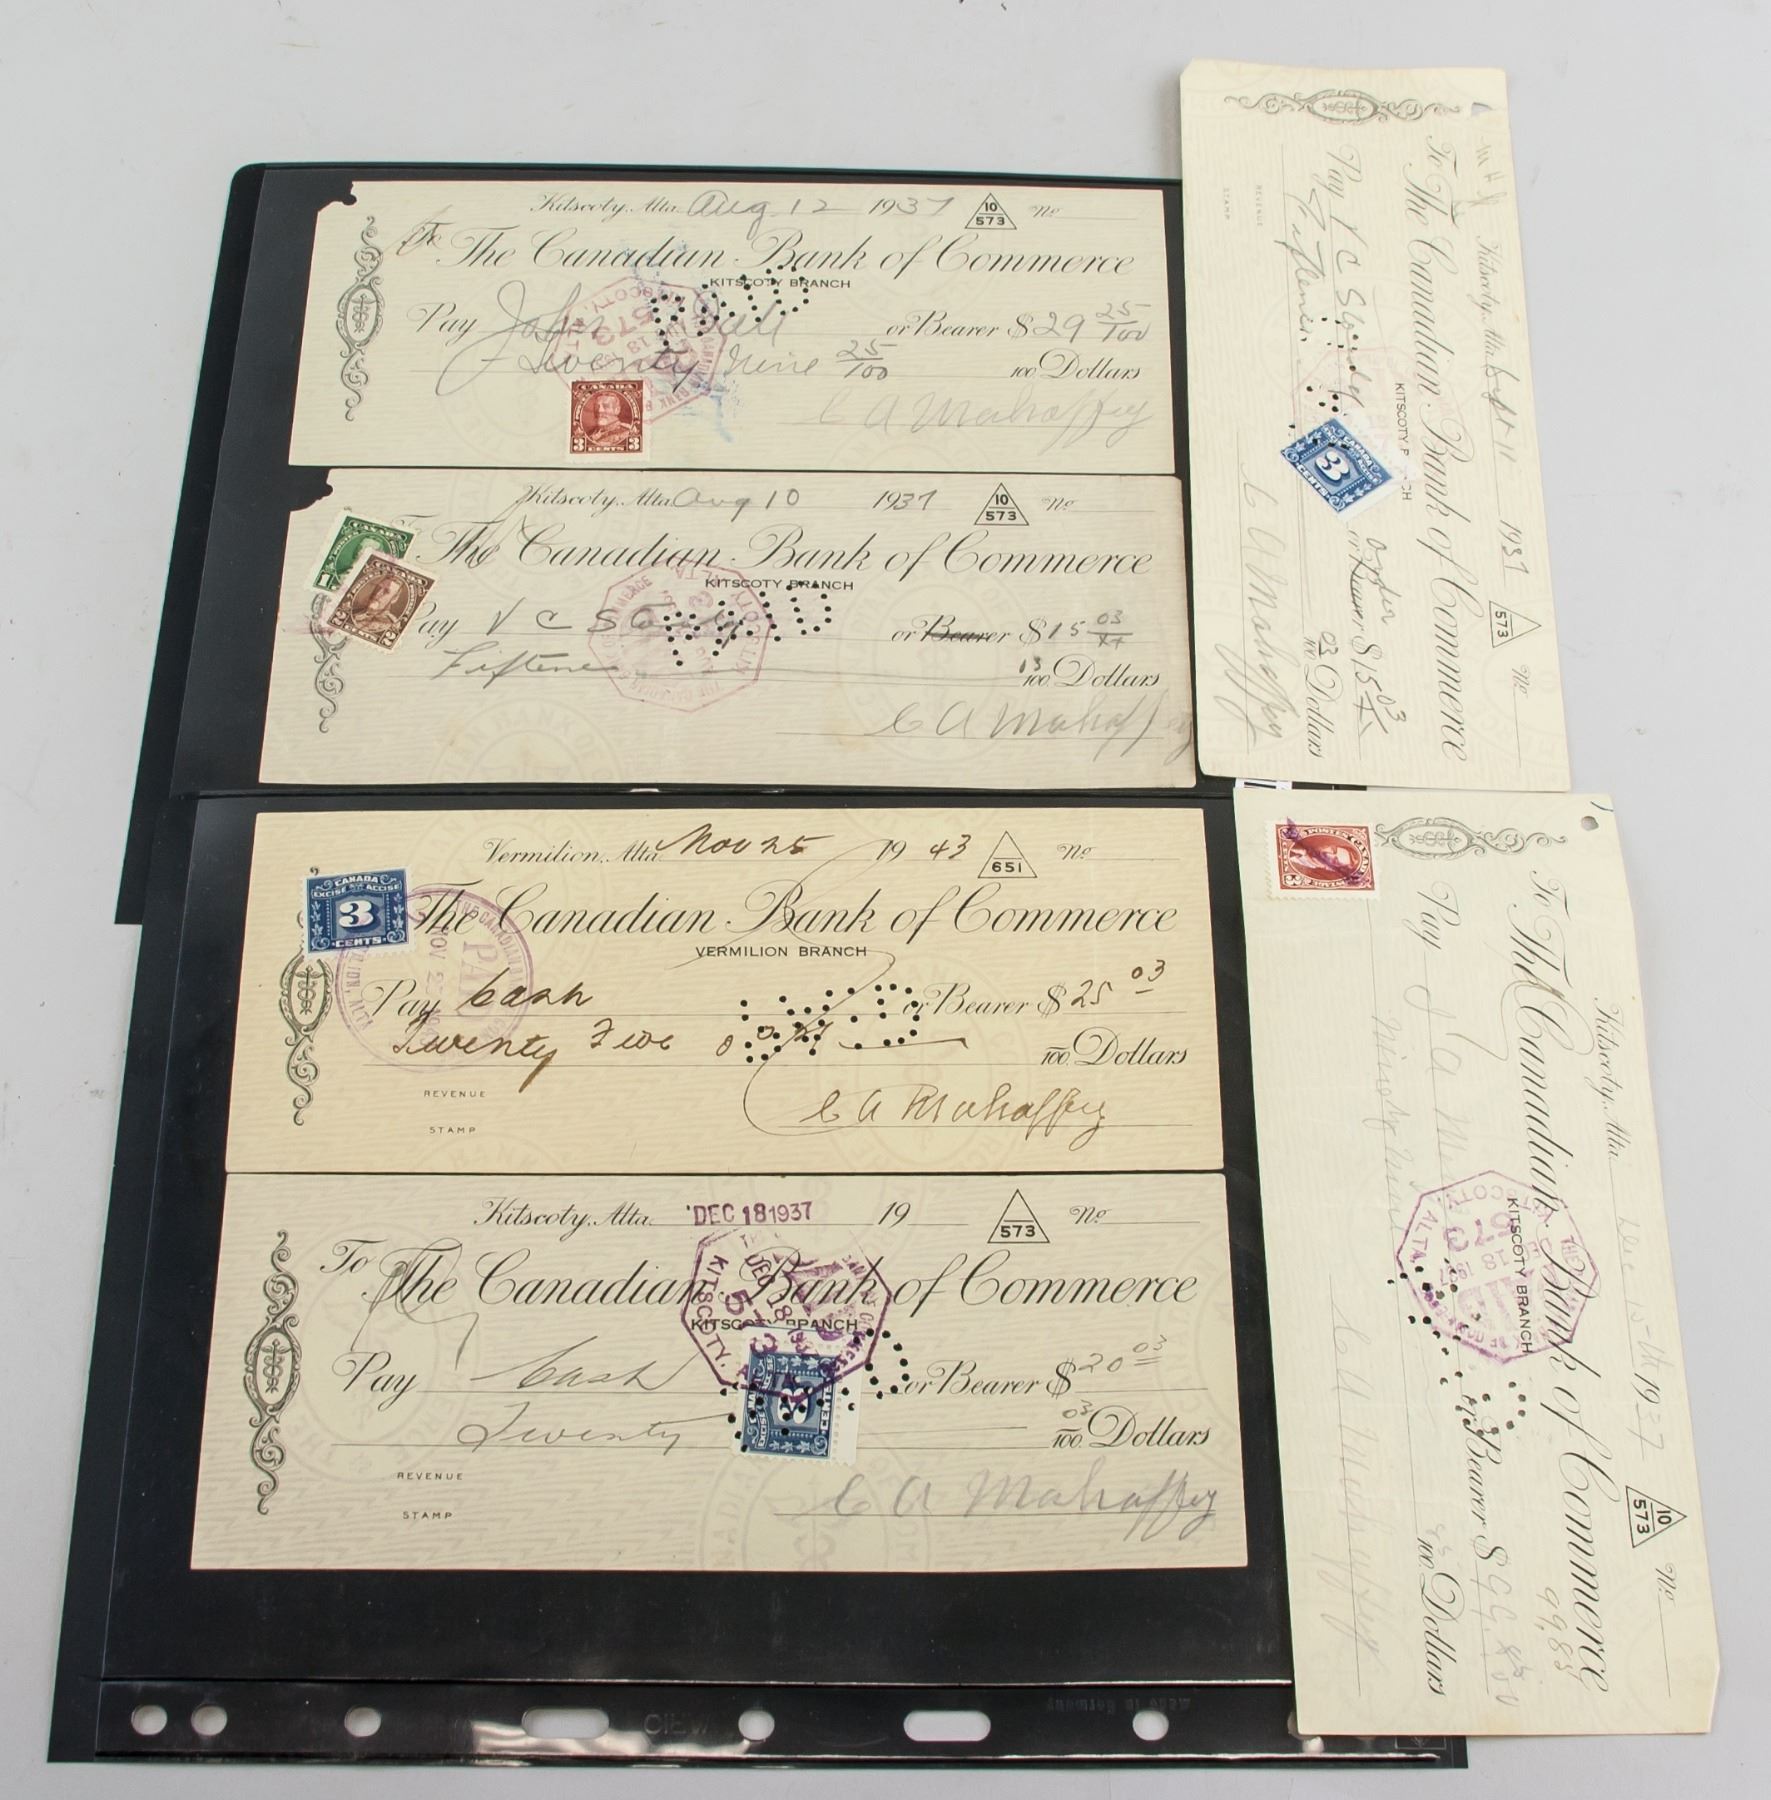 Kitscoty, Alta. Aug 12 1937 10/573 No
To The Canadian Bank of Commerce
KITSCOTY BRANCH
Pay John or Bearer $29 25/100
Twenty Nine 25/100 100 Dollars
CANADA
3 CENTS 3
C A Mahaffey
Kitscoty, Alta. Aug 10 1937 10/573 No
To The Canadian Bank of Commerce
KITSCOTY BRANCH
Pay V C or Bearer $15 03/xx
Fiftene 100 Dollars
C A Mahaffey
Vermilion, Alta. Nov 25 1943 651 No
CANADA
EXCISE ACCISE
3
CENTS
The Canadian Bank of Commerce
VERMILION BRANCH
Pay Cash or Bearer $25 03
Twenty Five 100 Dollars
REVENUE
STAMP
C A Mahaffey
Kitscoty, Alta. DEC 18 1937 19 573 No
To The Canadian Bank of Commerce
KITSCOTY BRANCH
KITSCOTY, 573
Pay Cash or Bearer $20 03
Twenty 03/100 Dollars
REVENUE
STAMP
C A Mahaffey
Kitscoty, Alta. 11 1937 573 No
To The Canadian Bank of Commerce
KITSCOTY
Pay V C order or Bearer $15 03
Fiftene 03/100 Dollars
CANADA
3
CENTS
REVENUE
STAMP
C A Mahaffey
Kitscoty, Alta. Dec 1937 10/573 No
To The Canadian Bank of Commerce
99.85
KITSCOTY BRANCH
Pay or Bearer $
Ninety Nine 100 Dollars
C A Mahaffey
KITSCOTY, ALTA. 573
Made in Germany